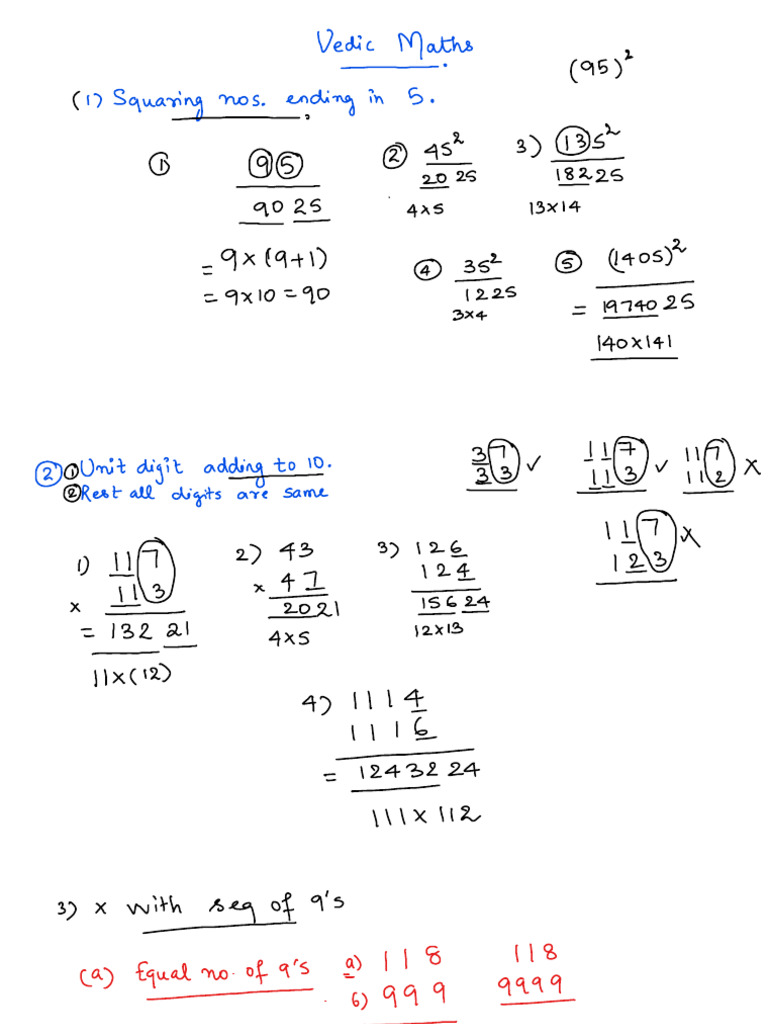 Vedic Maths
(95)²
(1) Squaring nos. ending in 5.
① 95
90 25
= 9×(9+1)
= 9×10 = 90
② 45²
20 25
4×5
3) 135²
182 25
13×14
④ 35²
12 25
3×4
⑤ (1405)²
= 19740 25
140×141
② ① Unit digit adding to 10.
② Rest all digits are same
37
33 ✓
117
113 ✓
117
112 ×
117
123 ×
1) 117
× 113
= 132 21
11×(12)
2) 43
× 47
2021
4×5
3) 126
124
156 24
12×13
4) 1114
1116
= 12432 24
111×112
3) × with seq of 9's
(a) Equal no. of 9's
a) 118
b) 999
118
9999